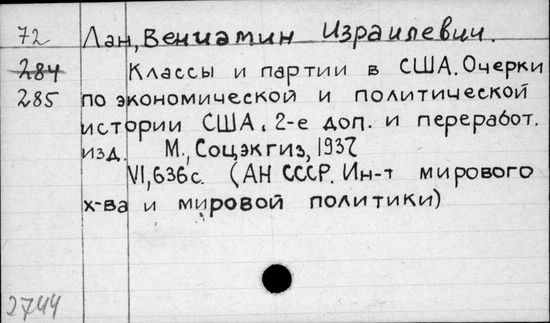 72 Лан, Вениамин Израилевич.
284 Классы и партии в США. Очерки
285 по экономической и политической
истории США. 2-е доп. и переработ.
изд. М., Соцэкгиз, 1937
VI, 636с. (АН СССР. Ин-т мирового
х-ва и мировой политики)
2744